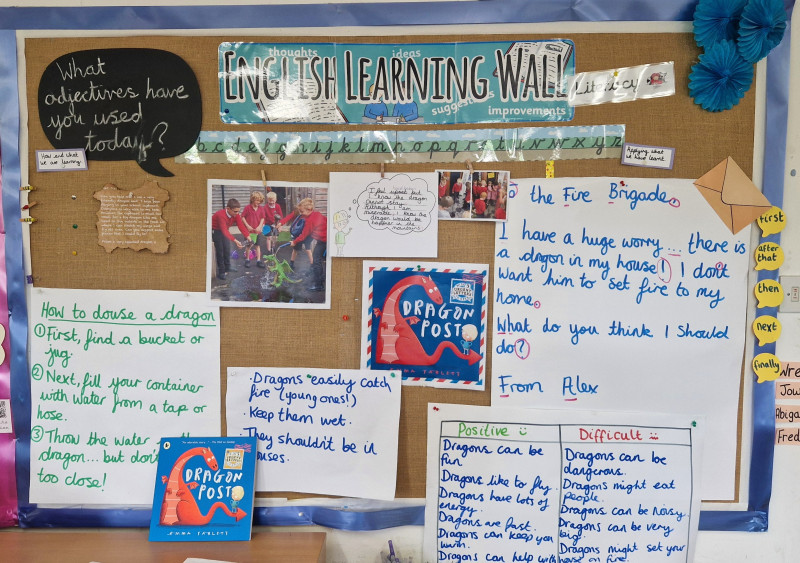 What
adjectives have
you used
today?
thoughts
ideas
ENGLISH LEARNING WALL
suggestions
improvements
Literacy
b c d e f g h i j k l m n o p q r s t u v w x y z
How and what
we are learning.
Applying what
we have learnt.
I feel upset but
I know the dragon
cannot stay.
Although I am
miserable, I know the
dragon would be
happier in the
mountains.
To the Fire Brigade,
I have a huge worry... there is
a dragon in my house! I don't
want him to set fire to my
home.
What do you think I should
do?
From Alex
First
after
that
then
next
finally
How to douse a dragon
① First, find a bucket or
jug.
② Next, fill your container
with water from a tap or
hose.
③ Throw the water
dragon... but don't
too close!
DRAGON
POST
EMMA YARLETT
· Dragons easily catch
fire (young ones!)
· Keep them wet.
They shouldn't be in
DRAGON
POST
EMMA YARLETT
Positive Difficult
Dragons can be
fun
Dragons like to fly.
Dragons have lots of
energy.
Dragons are fast.
Dragons can keep you
warm.
Dragons can help with
Dragons can be
dangerous.
Dragons might eat
people.
Dragons can be noisy.
Dragons can be very
big.
Dragons might set your
house on fire.
Wre
Jou
Abiga
Fred